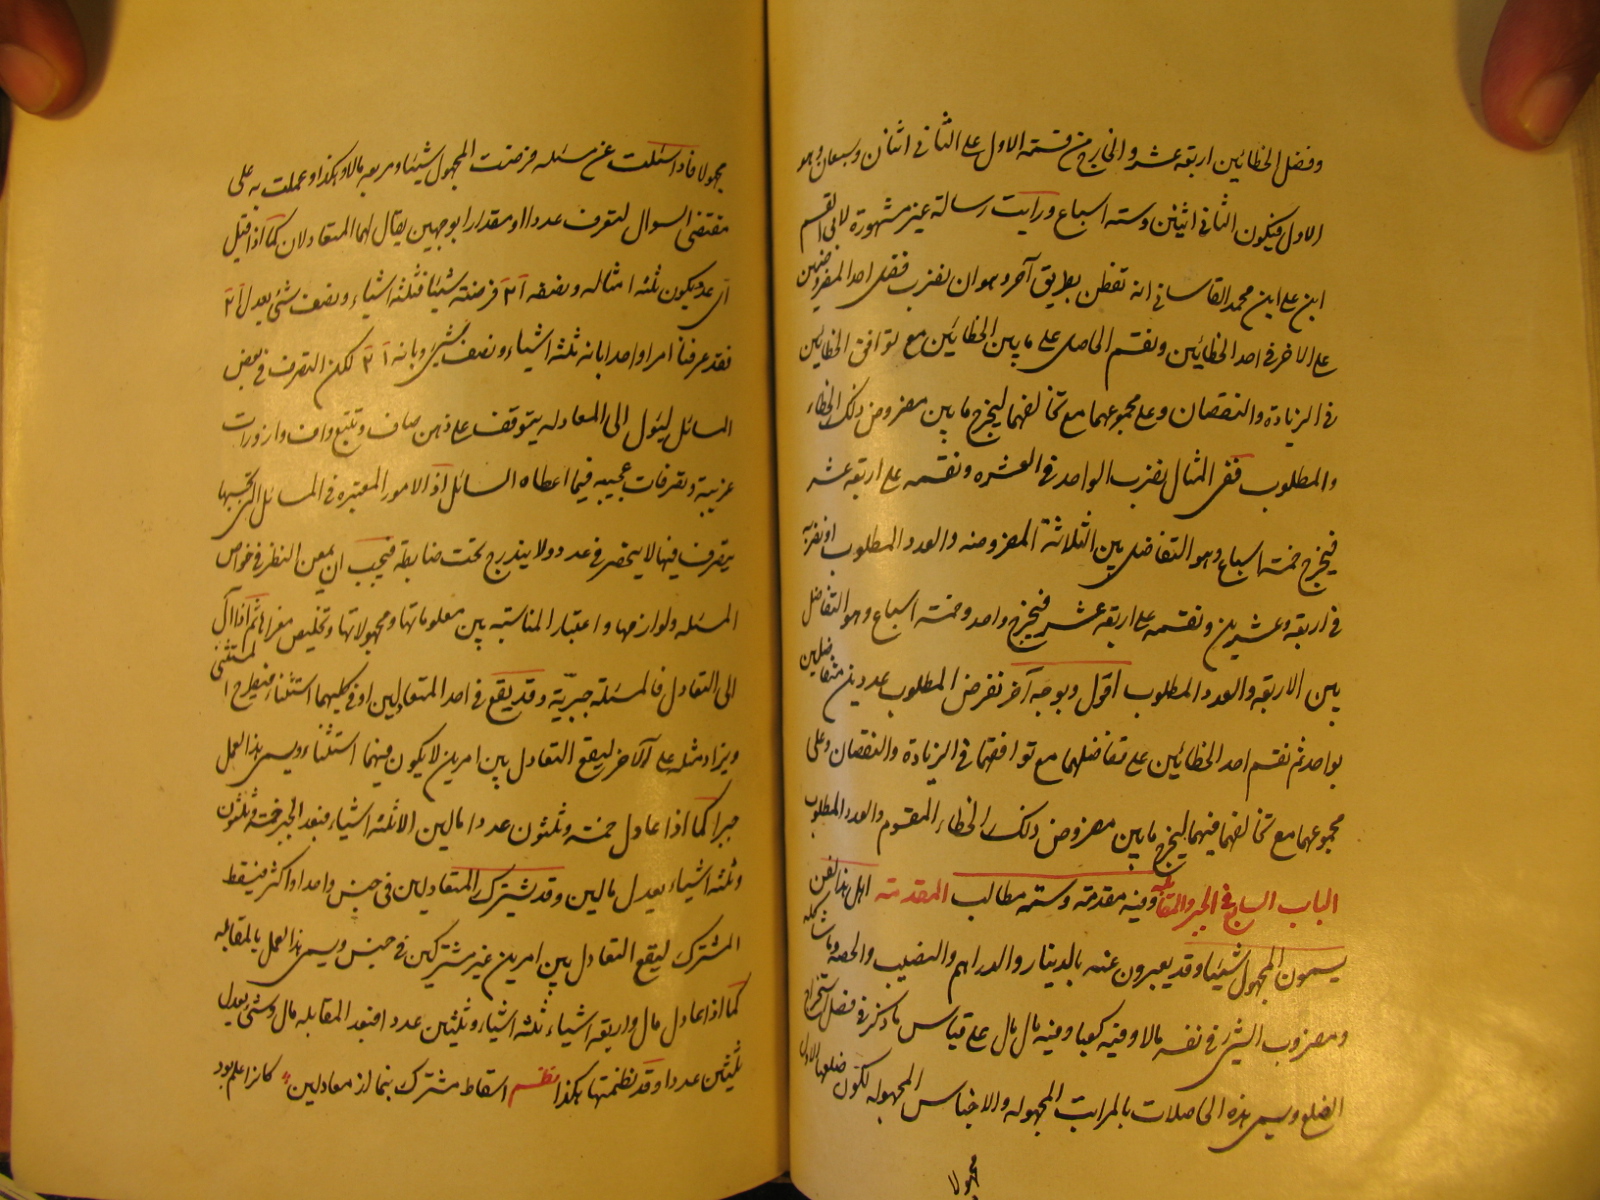 وفضل الخطائين اربعة عشر والخارج من قسمة الاول على الثانى اثنان وسبعان وهو
الاول فيكون الثانى اثنين وستة اسباع ورايت رسالة غير مشهورة لابى القسم
ابن على ابن محمد القاسانى انه تفطن بطريق آخر وهو ان نضرب فضل احد المفروضين
على الآخر فى احد الخطائين ونقسم الحاصل على ما بين الخطائين مع توافق الخطائين
فى الزيادة والنقصان وعلى مجموعهما مع تخالفهما ليخرج ما بين مفروض ذلك الخطاء
والمطلوب ففى المثال نضرب الواحد فى العشره ونقسمه على اربعة عشر
فيخرج خمسة اسباع وهو التفاضل بين الثلاثة المفروضه والعدد المطلوب او نضربه
فى اربعة وعشرين ونقسمه على اربعة عشر فيخرج واحد وخمسة اسباع وهو التفاضل
بين الاربعة والعدد المطلوب اقول وبوجه آخر نفرض المطلوب عددين متفاضلين
بواحد ثم نقسم احد الخطائين على تفاضلهما مع توافقهما فى الزيادة والنقصان وعلى
مجموعهما مع تخالفهما فيهما ليخرج ما بين مفروض ذلك الخطاء المقسوم والعدد المطلوب
الباب السابع فى الجبر والمقابله وفيه مقدمة وستة مطالب المقدمة اهل هذا الفن
يسمون المجهول شيئا وقد يعبرون عنه بالدينار والدراهم والنصيب والحصه وما شاكله
ومضروب الشئ فى نفسه مالا وفيه كعبا وفيه مال مال على قياس ما ذكر فى فصل استخراج
الضلع ويسمى هذه الحاصلات بالمراتب المجهوله والاجناس المجهوله لكون ضلعها الاول
مجهولا
مجهولا فاذا سئلت عن مسئله فرضت المجهول شيئا ومربعه مالا وهكذا وعملت به على
مقتضى السوال لتعرف عددا او مقدارا بوجهين يقال لهما المتعادلان كما اذا قيل
اى عدد يكون ثلثة امثاله ونصفه ٢١ فرضته شيئا فثلثة اشياء ونصف شئ يعدل ٢١
فقد عرفنا امرا واحدا بانه ثلثة اشياء ونصف شئ وبانه ٢١ لكن التصرف فى بعض
المسائل ليئول الى المعادله يتوقف على ذهن صاف وتتبع واف وازورات
غريبة وتصرفات عجيبه فيما اعطاه السائل اذ الامور المعتبره فى المسائل التى بحسبها
يتصرف فيها لا ينحصر فى عدد ولا يندرج تحت ضابطة فيجب ان يمعن النظر فى خواص
المسئله ولوازمها واعتبار المناسبة بين معلوماتها ومجهولاتها وتخليص مغزاها ثم اذا آل
الى التعادل فالمسئلة جبريّة وقد يقع فى احد المتعادلين او فى كليهما استثناء فيطرح المستثنى
ويزاد مثله على الآخر ليقع التعادل بين امرين لا يكون فيهما استثناء ويسمى هذا العمل
جبرا كما اذا عادل خمسة وثلثون عددا مالين الا ثلثة اشياء فبعد الجبر خمسة وثلثون
وثلثة اشياء يعدل مالين وقد يشترك المتعادلين فى جنس واحد او اكثر فيسقط
المشترك ليقع التعادل بين امرين غير مشتركين فى جنس ويسمى هذا العمل بالمقابله
كما اذا عادل مال واربعة اشياء ثلثة اشياء وثلثين عددا فبعد المقابله مال وشئ يعدل
ثلثين عددا وقد نظمتها هكذا نظم اسقاط مشترك بنما از معادلين كانرا علم بود